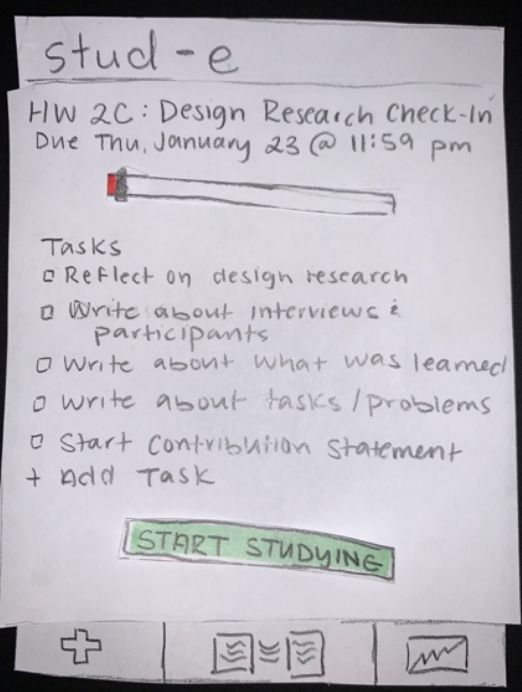 stud-e
HW 2C: Design Research Check-In
Due Thu, January 23 @ 11:59 pm
Tasks
Reflect on design research
Write about interviews &
participants
Write about what was learned
Write about tasks/problems
Start contribution statement
+ Add Task
START STUDYING